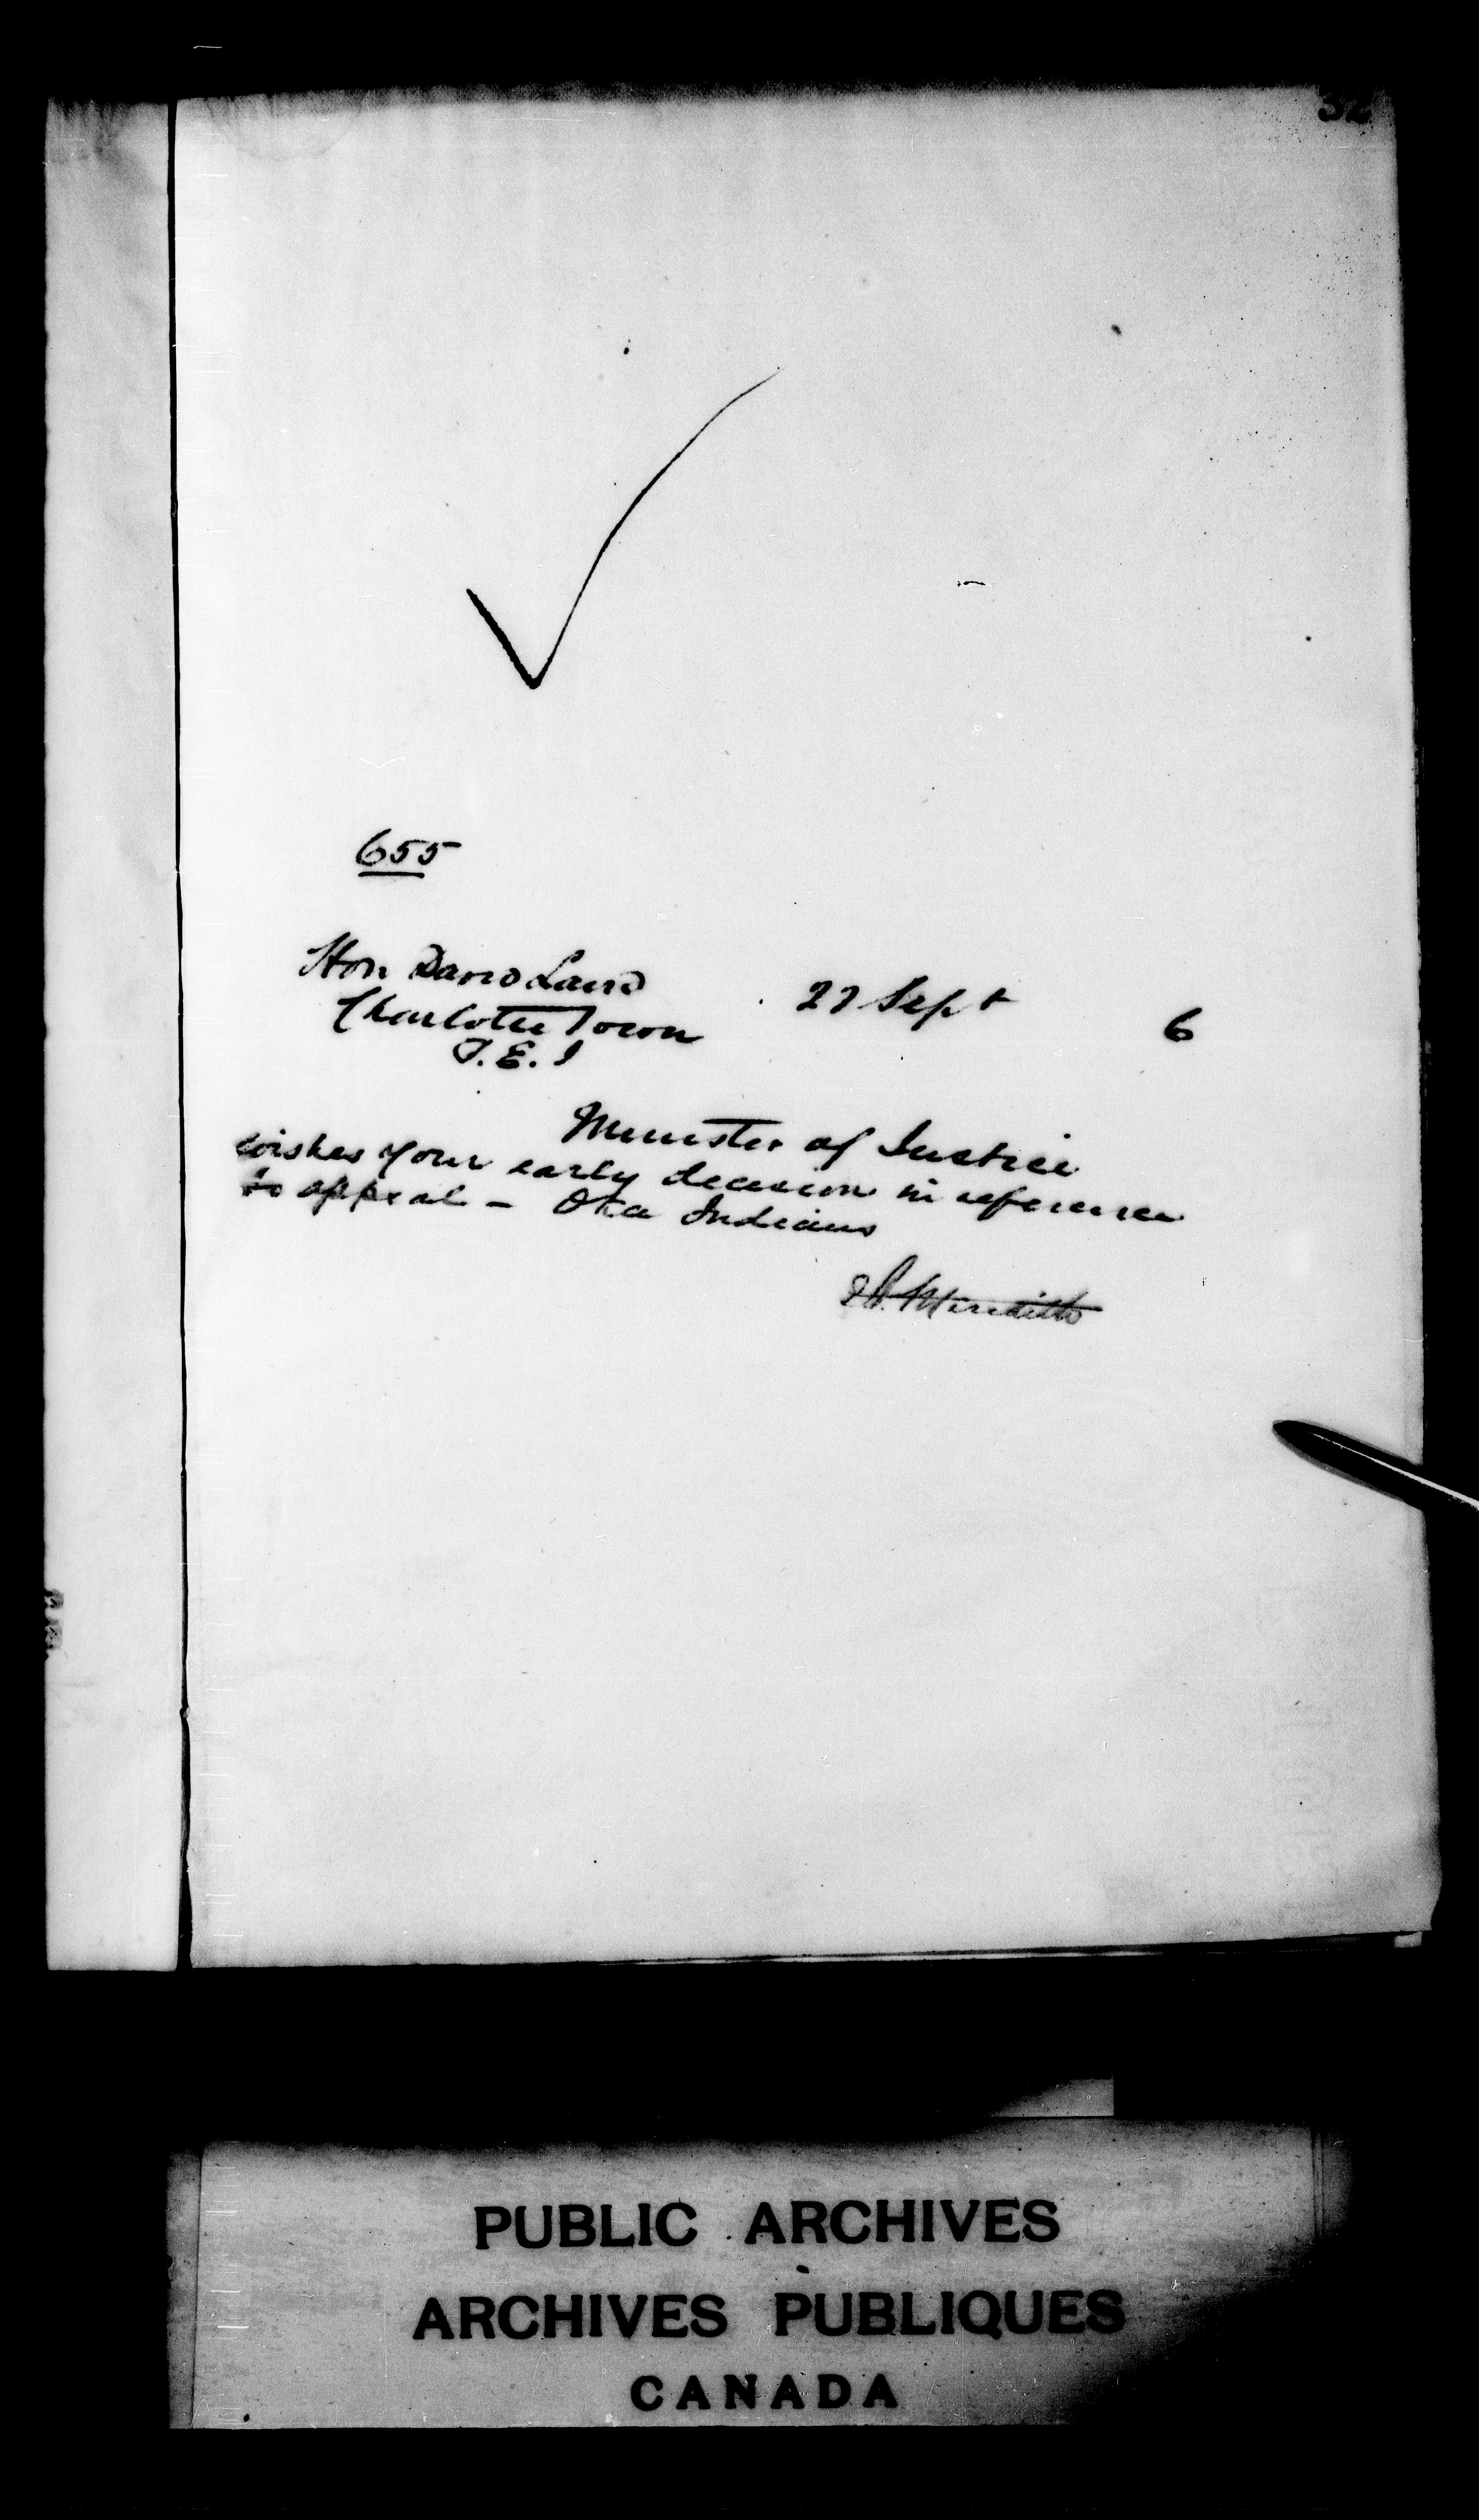 655
Hon David Laird
Charlotte Town
P.E.I
27 Sept 6
Minister of Justice
wishes your early decision in reference
to appeal - Oka Indians
E A Meredith
PUBLIC ARCHIVES
ARCHIVES PUBLIQUES
CANADA